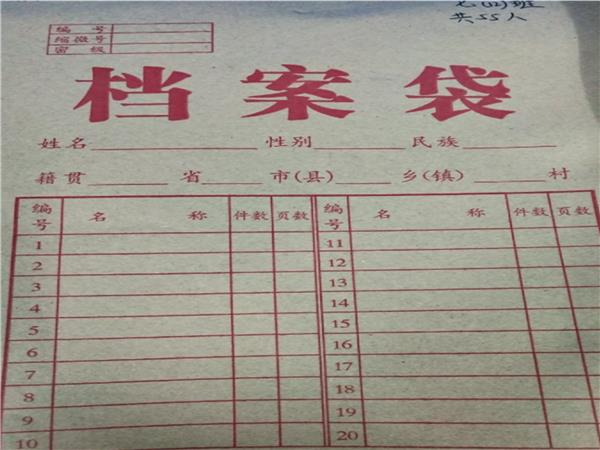 七(12)班
共55人
编号
缩微号
密级
档案袋
姓名 性别 民族
籍贯 省 市(县) 乡(镇) 村
编号 名称 件数 页数 编号 名称 件数 页数
1 11
2 12
3 13
4 14
5 15
6 16
7 17
8 18
9 19
10 20